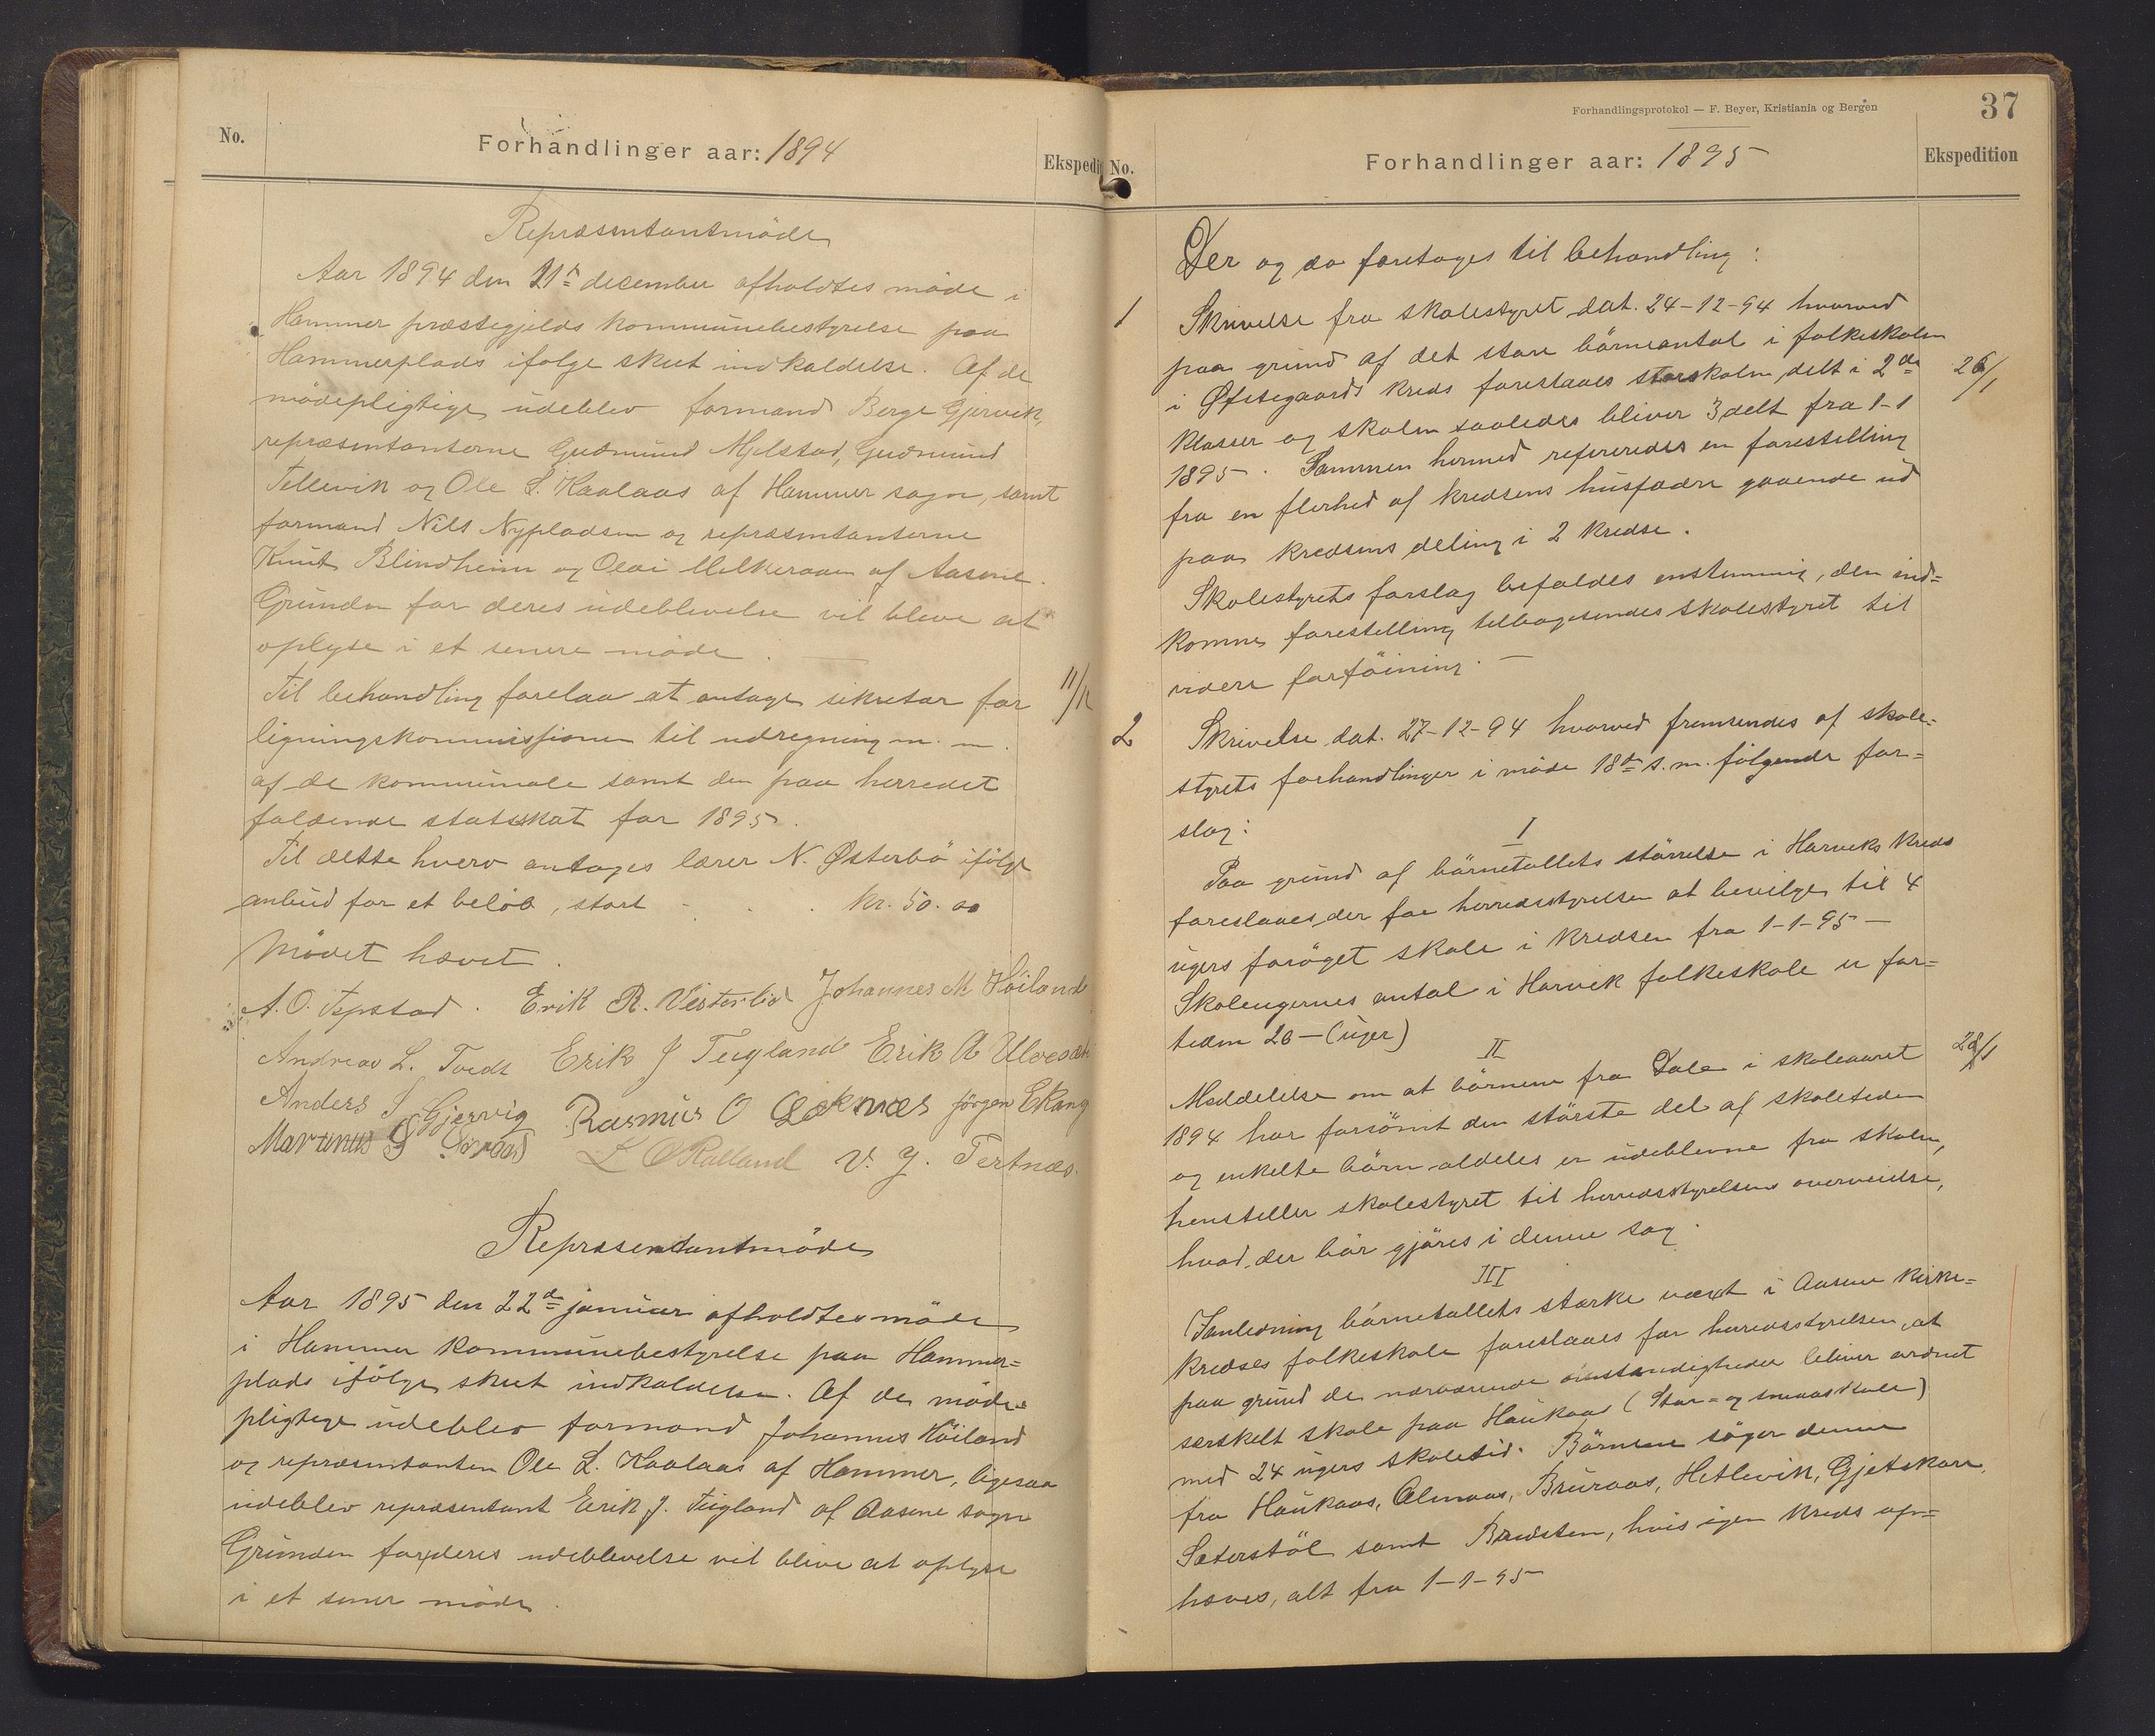 No.
Forhandlinger aar: 1894
Ekspedit
Repræsentantmöde
Aar 1894 den 21de december afholdtes möde i
Hammer præstegjelds kommunebestyrelse paa
Hammerplads ifølge skeet indkaldelse. Af de
mödepligtige udeblev formand Berge Gjervik,
repræsentanterne Gudmund Mjelstad, Gudmund
Tellevik og Ole L. Kaalaas af Hammer sogn, samt
formand Nils Nypladsen og repræsentanterne
Knut Blindheim og Olai Melkeraaen af Aasene.
Grunden for deres udeblivelse vil blive at
oplyse i et senere möde.
Til behandling forelaa at antage sekretær for
11/12
ligningskommissionen til udregning m. m.
af de kommunale samt den paa herredet
faldende statsskat for 1895.
Til dette hverv antages lærer N. Østerbö ifölge
anbud for et belöb, stort - . . kr. 50.00
Mödet hævet.
A. O. Tepstad. Erik R. Vesterlid Johannes M Höiland
Andreas L. Tvedt Erik J Tugland Erik A Ulvesæt
Anders S Gjervig Rasmus O Løknæs Jörgen E Kang
Martinus L O Ralland V. J. Tertnæs.
Repræsentantmöde
Aar 1895 den 22de januar afholdtes möde
i Hammer kommunebestyrelse paa Hammer=
plads ifölge skeet indkaldelse. Af de möde=
pligtige udeblev formand Johannes Höiland
og repræsentanten Ole L. Kaalaas af Hammer, ligesaa
udeblev repræsentant Eerik J. Tugland af Aasene sogn
Grunden for deres udeblivelse vil blive at oplyse
i et senere möde.
Forhandlingsprotokol — F. Beyer, Kristiania og Bergen
37
No.
Forhandlinger aar: 1895
Ekspedition
Der og da foretages til behandling:
1 Skrivelse fra skolestyret dat. 24-12-94 hvorved
paa grund af det store börneantal i folkeskolen
i Øfstegaards kreds foreslaaes storskolen delt i 2de
26/1
klasser og skolen saaledes bliver 3delt fra 1-1
1895. Sammen hermed refereredes en forestilling
fra en flerhed af kredsens husfædre gaaende ud
paa kredsens deling i 2 kredse.
Skolestyrets forslag befaldes enstemmig, den ind=
komne forestilling tilbagesendes skolestyret til
videre forföining. —
2 Skrivelse dat. 27-12-94 hvorved fremsendes af skole=
styrets forhandlinger i möde 18de s. m. fölgende for=
slag:
I
Paa grund af börnetallets störrelse i Harviks kreds
foreslaaes der for herredsstyrelsen at bevilge til 4
ugers foröget skole i kredsen fra 1-1-95 —
Skoleugernes antal i Harvik folkeskole er for=
tiden 20 — (uger)
II
28/1
Meddelelse om at börnene fra Dale i skoleaaret
1894 har forsömt den störste del af skoletiden
og enkelte börn aldeles er udeblevne fra skolen,
henstiller skolestyret til herredsstyrelsens overveielse,
hvad der bör gjöres i denne sag.
III
I anledning börnetallets stærke væxt i Aasene kirke=
kredses folkeskole foreslaaes for herredsstyrelsen, at
paa grund de nærværende omstændigheder bliver ordnet
særskelt skole paa Haukaas (Stor= og smaaskole)
med 24 ugers skoletid. Börnene söger denne
fra Haukaas, Almaas, Bruraas, Hetlevik, Gjetskare,
Sæterstöl samt Breisten, hvis igen kreds op=
hæves, alt fra 1-1-95